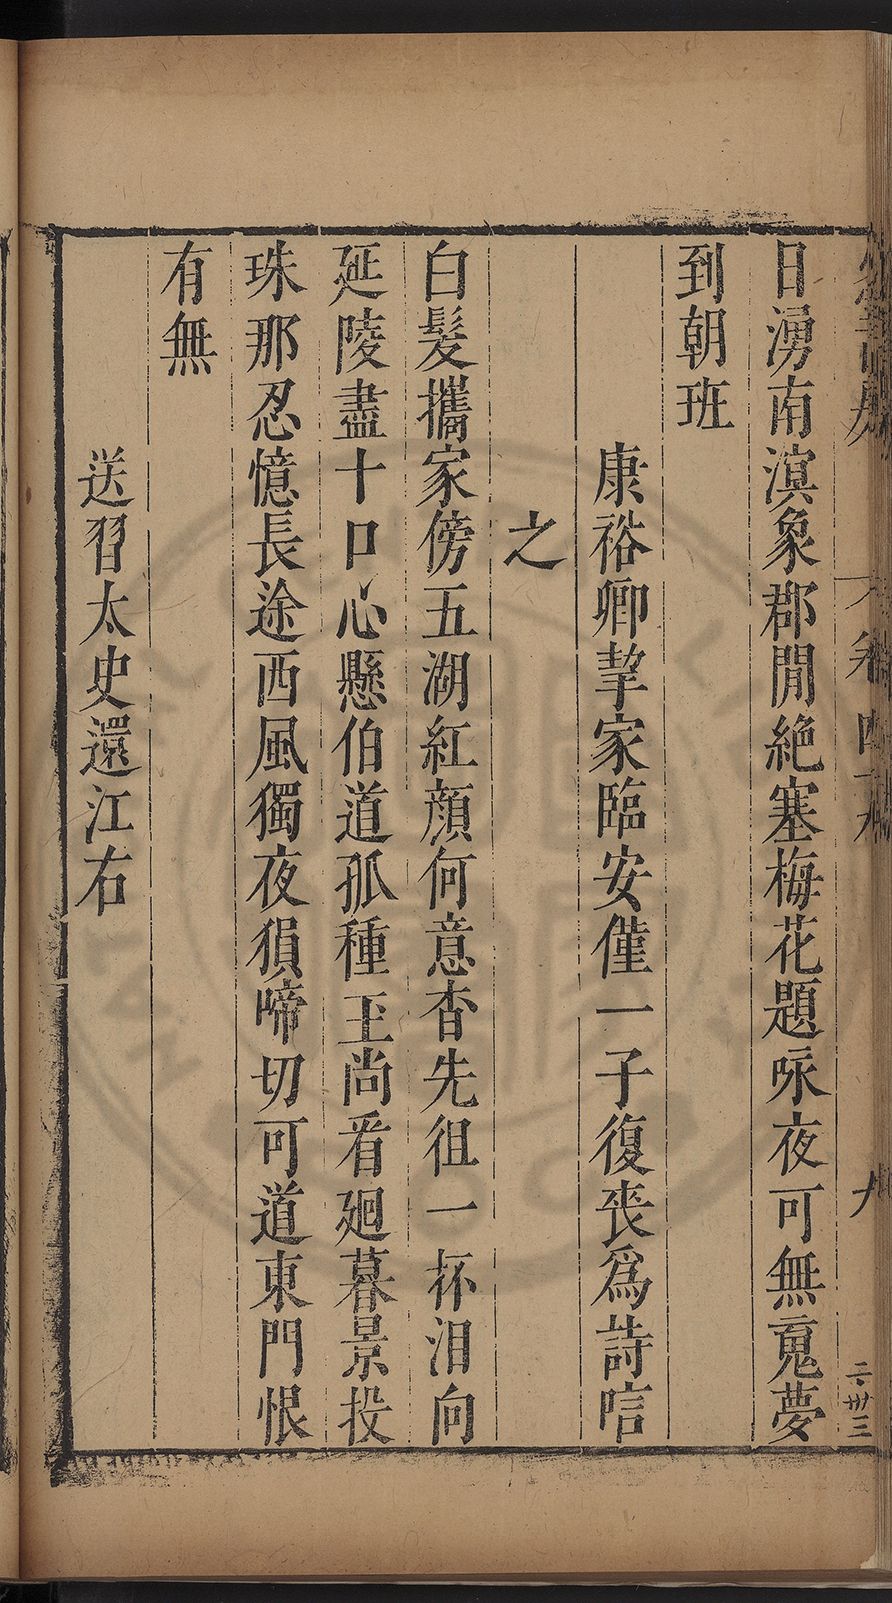 日湧南溟象郡閒絶塞梅花題咏夜可無䰟夢
到朝班
康裕卿挈家臨安僅一子復喪爲詩唁
之
白髮攜家傍五湖紅顔何意杳先徂一杯泪向
延陵盡十口心懸伯道孤種玉尚看廻暮景投
珠那忍憶長途西風獨夜猿啼切可道東門恨
有無
送習太史還江右